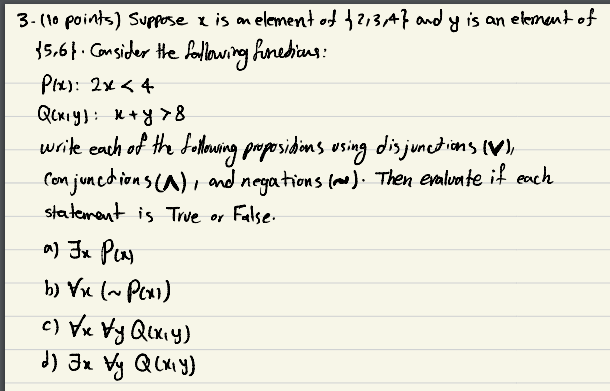 3- (10 points) Suppose x is an element of {2,3,4} and y is an element of
{5,6}. Consider the following functions:
P(x): 2x < 4
Q(x,y): x+y >8
write each of the following propositions using disjunctions (∨),
conjunctions (∧), and negations (~). Then evaluate if each
statement is True or False.
a) ∃x P(x)
b) ∀x (~ P(x))
c) ∀x ∀y Q(x,y)
d) ∃x ∀y Q(x,y)